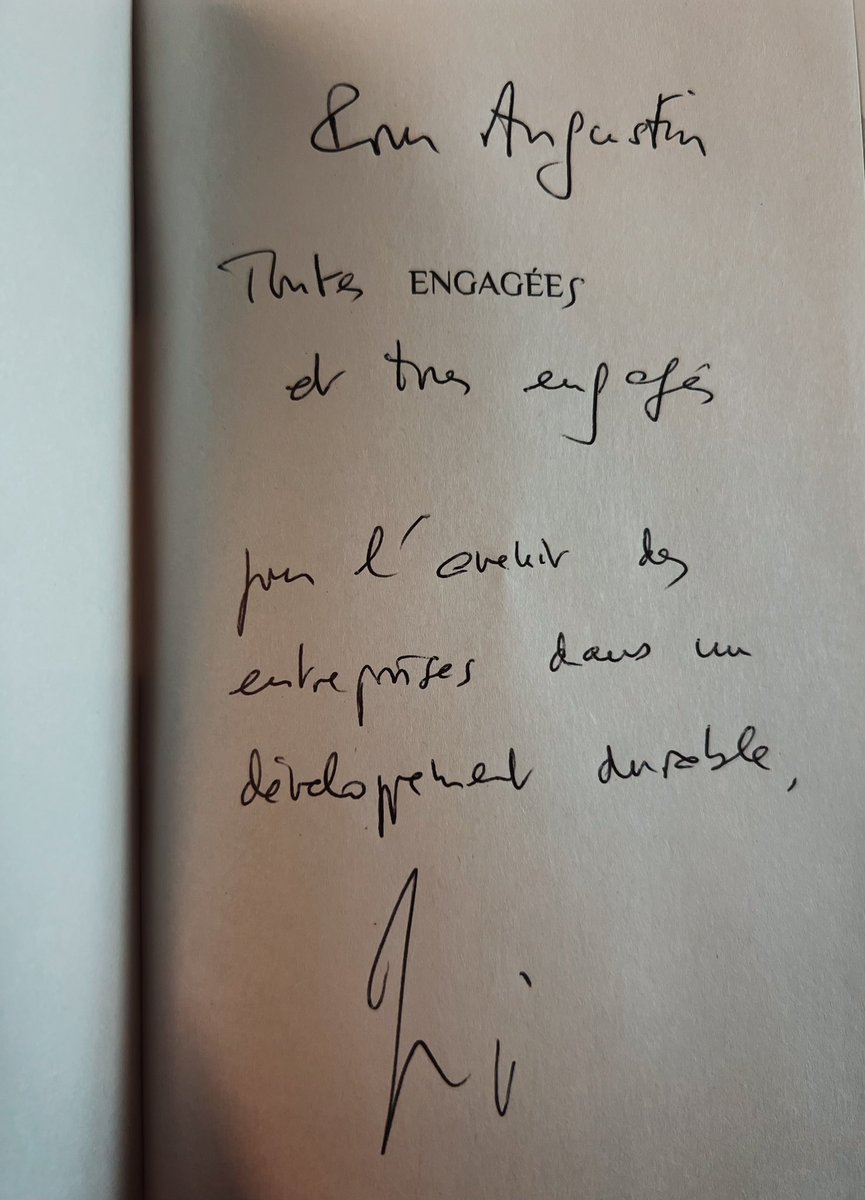 Pour Augustin
Toutes ENGAGÉES
et tous engagés
pour l'avenir des
entreprises dans un
développement durable,